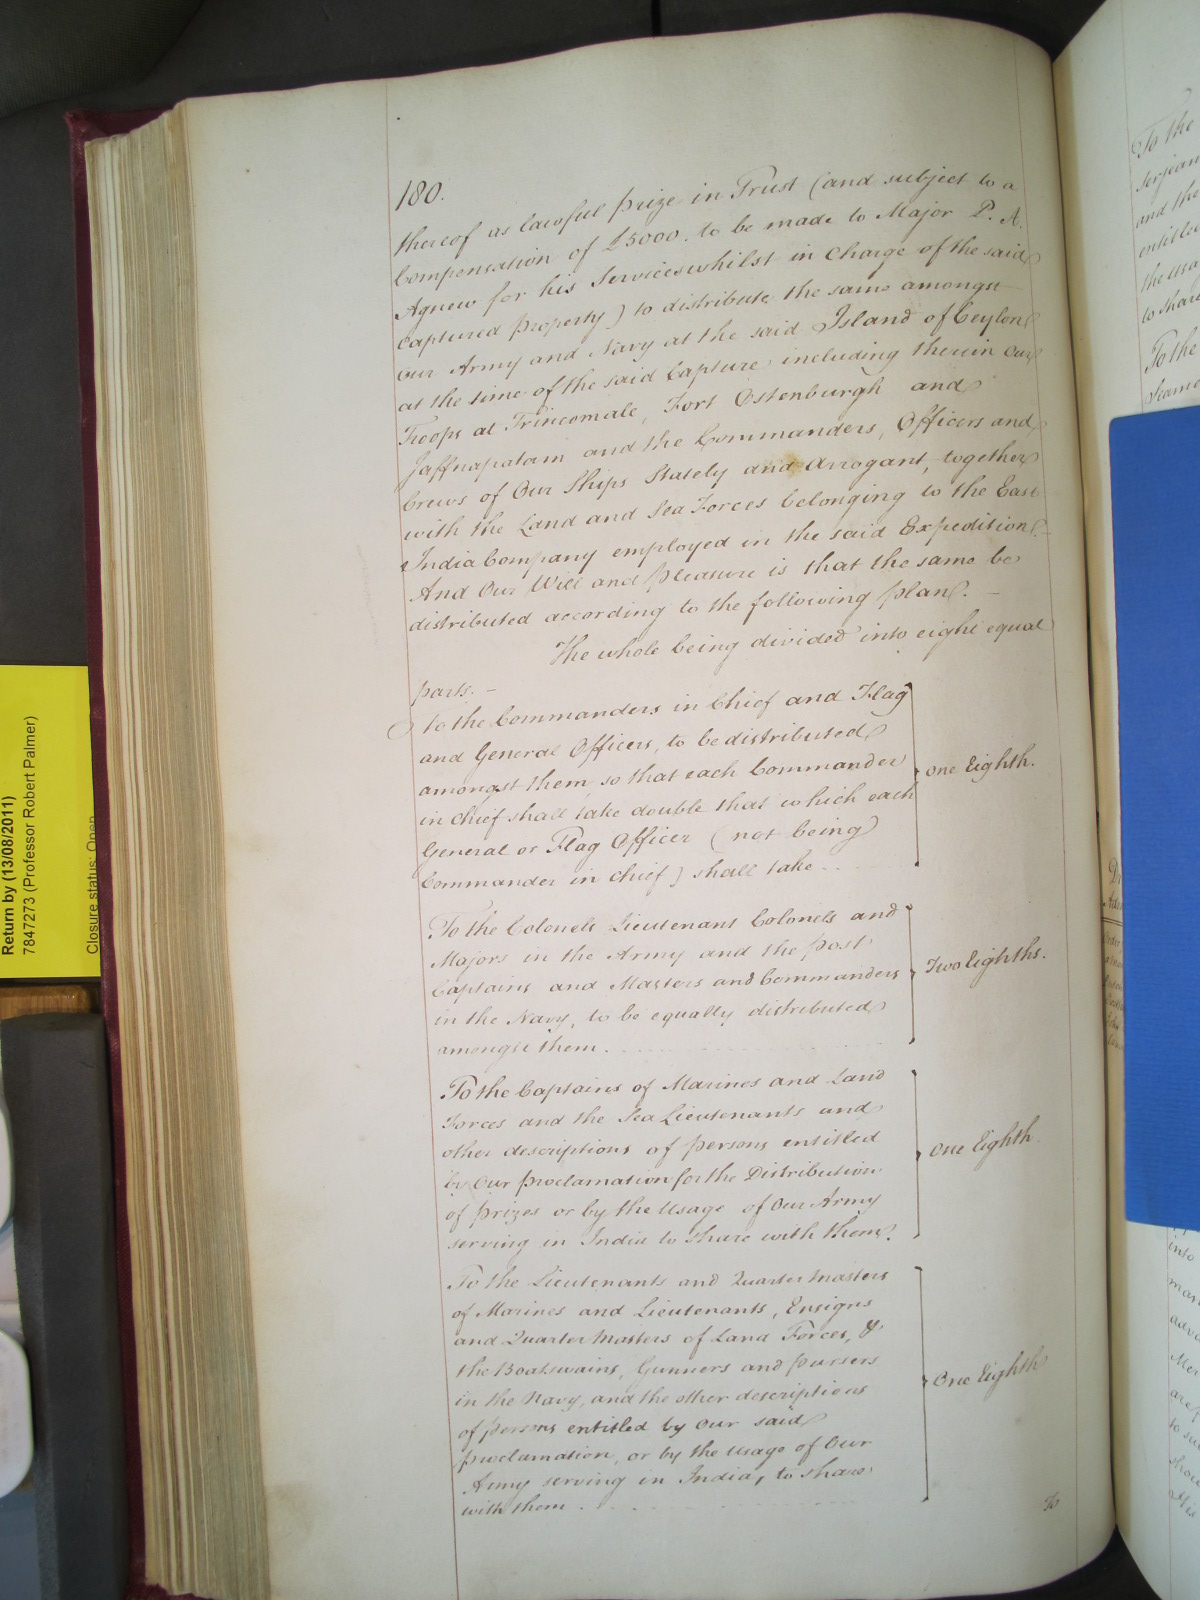 180.
thereof as lawful prize in Trust (and subject to a
Compensation of £5000. to be made to Major P. A.
Agnew for his Services whilst in Charge of the said
captured property) to distribute the same amongst
our Army and Navy at the said Island of Ceylon
at the time of the said Capture including therein our
Troops at Trincomale, Fort Ostenburgh and
Jaffnapatam and the Commanders, Officers and
Crews of Our Ships Stately and Arrogant, together
with the Land and Sea Forces belonging to the East
India Company employed in the said Expedition.
And Our Will and pleasure is that the same be
distributed according to the following plan.
The whole being divided into eight equal
parts.
To the Commanders in Chief and Flag
and General Officers, to be distributed
amongst them, so that each Commander
in Chief shall take double that which each
General or Flag Officer (not being
Commander in Chief) shall take
one Eighth.
To the Colonels Lieutenant Colonels and
Majors in the Army and the post
Captains and Masters and Commanders
in the Navy, to be equally distributed
amongst them.
Two Eighths.
To the Captains of Marines and Land
Forces and the Sea Lieutenants and
other descriptions of persons entitled
by Our proclamation for the Distribution
of prizes or by the Usage of Our Army
serving in India to share with them.
One Eighth
To the Lieutenants and Quarter Masters
of Marines and Lieutenants, Ensigns
and Quarter Masters of Land Forces, &
the Boatswains, Gunners and pursers
in the Navy, and the other descriptions
of persons entitled by our said
proclamation, or by the usage of Our
Army serving in India, to share
with them
One Eighth
To
Return by (13/08/2011)
7847273 (Professor Robert Palmer)
Closure status: Open
To the
and the
to share
To the
into